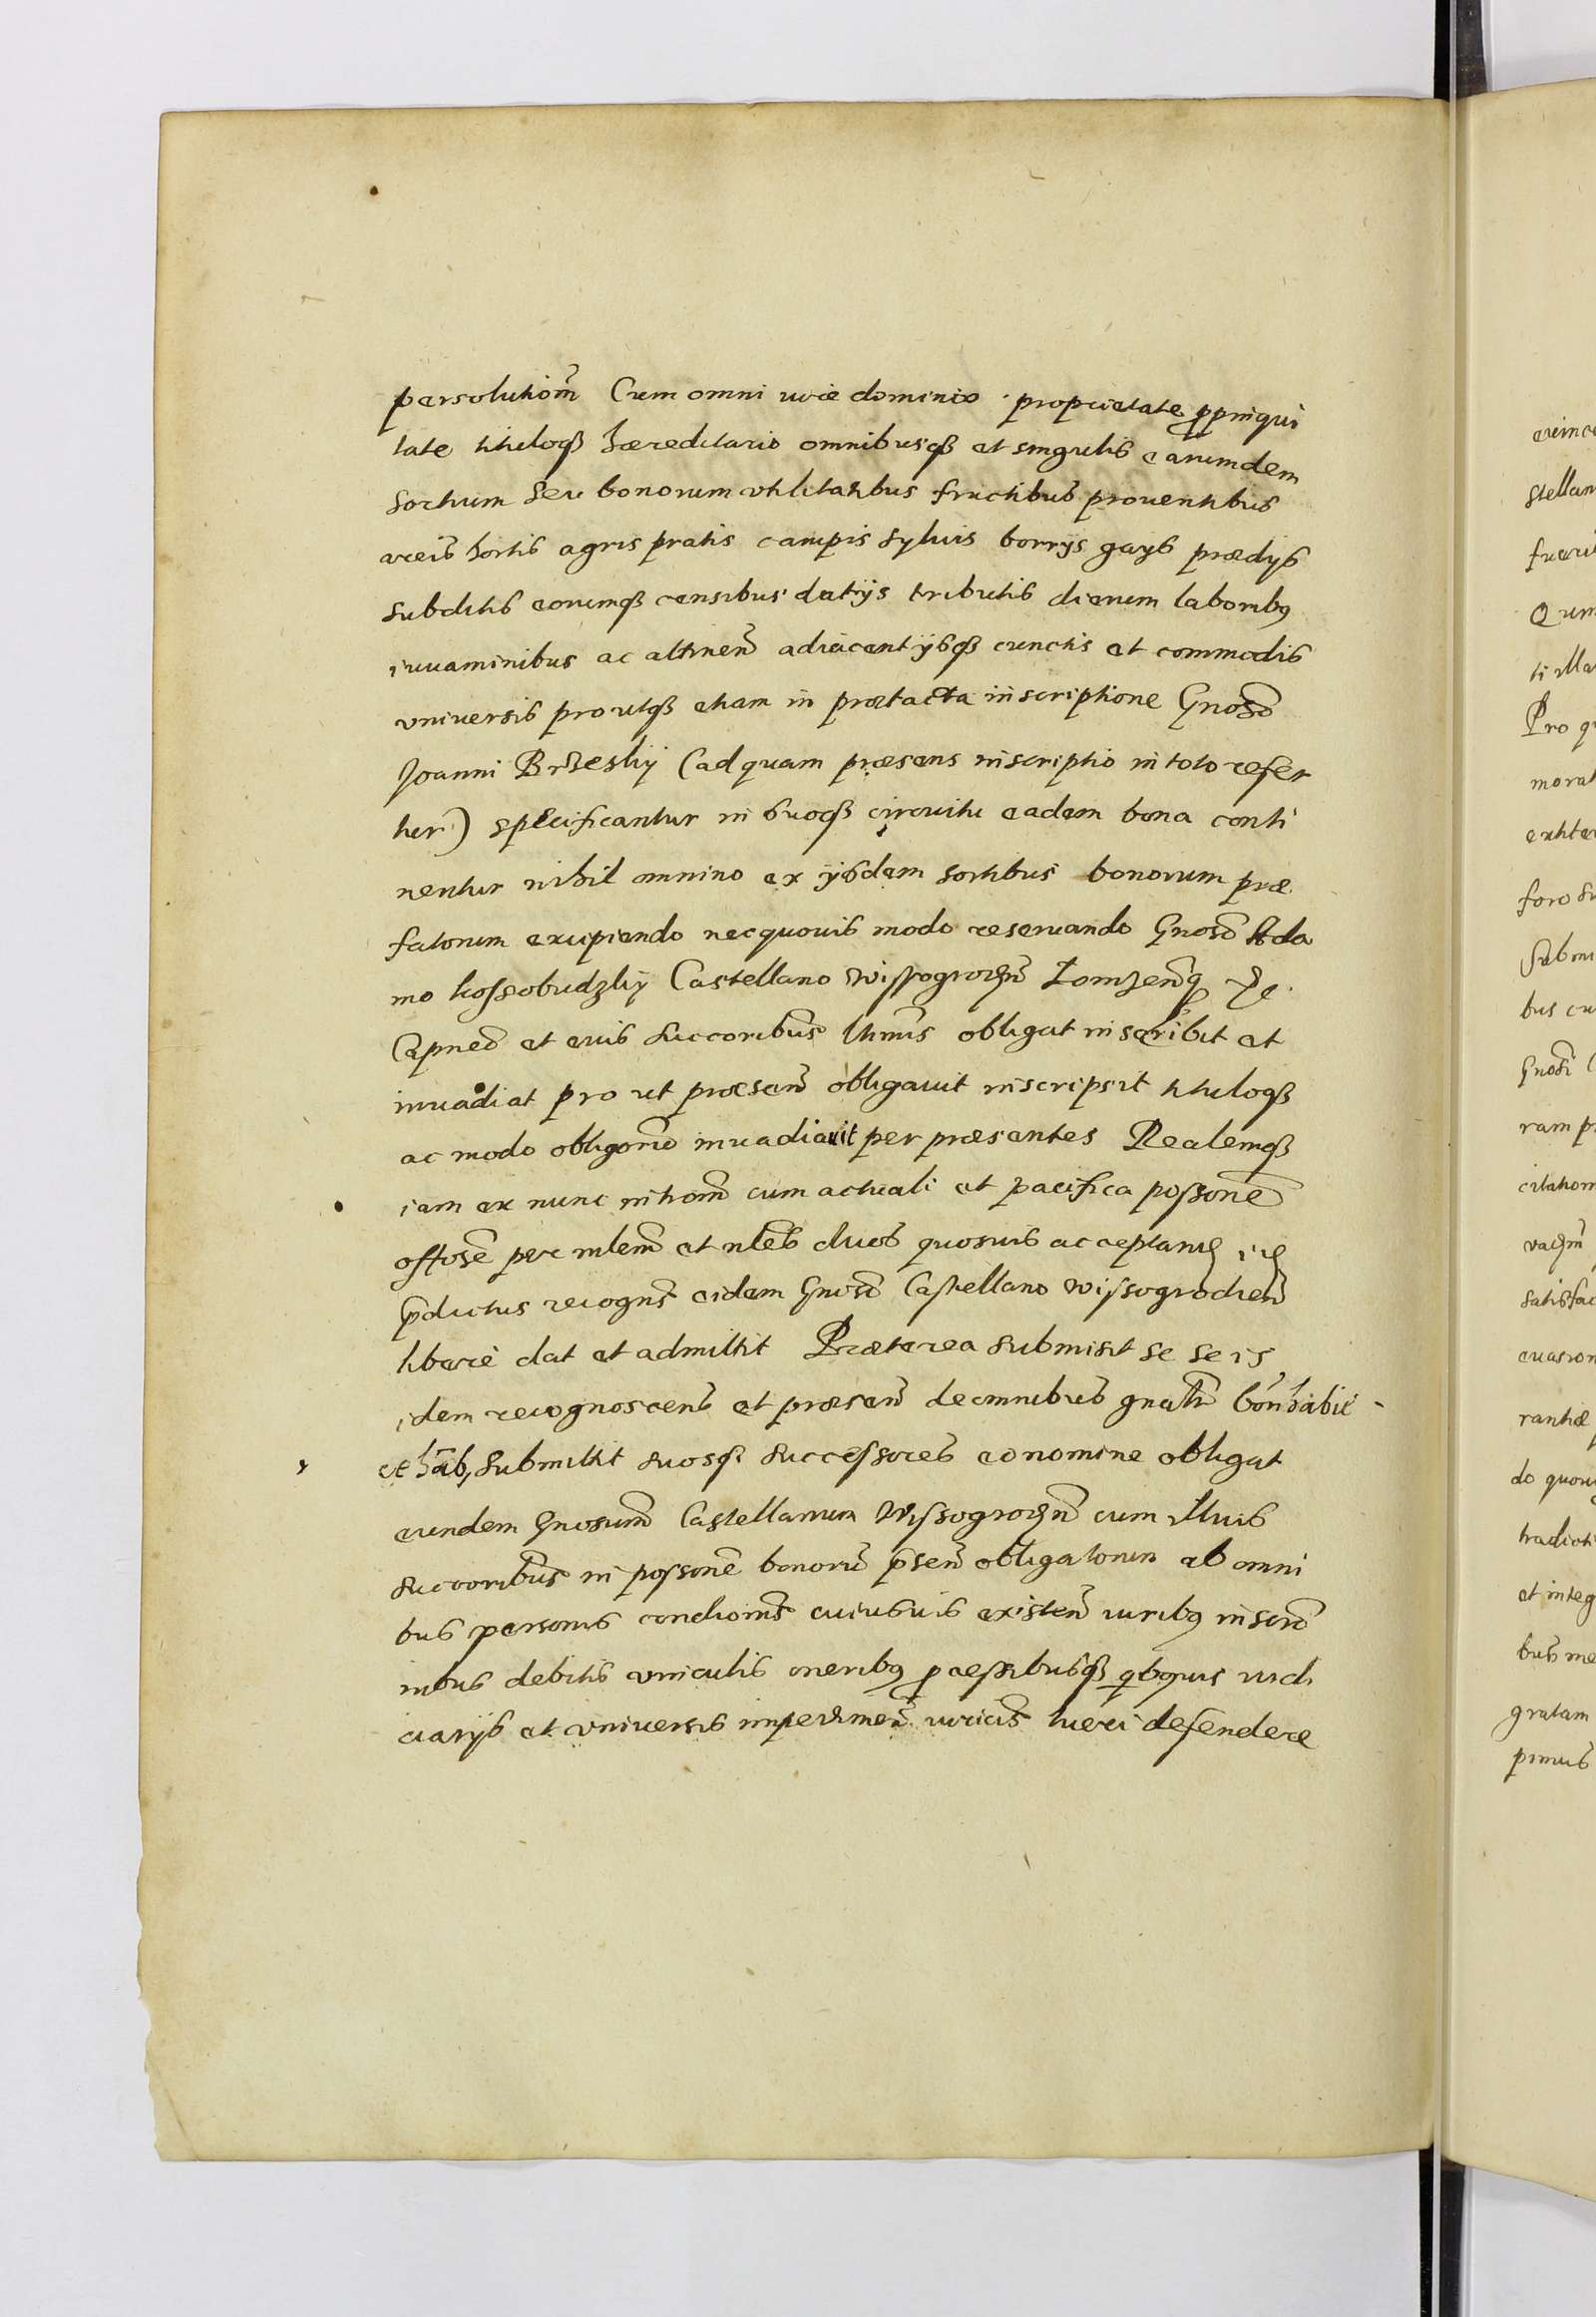 persolutiom̃ Cum omni iure dominio proprietate ꝓpinqui
tate tituloqȝ hæreditario omnibusqȝ et singulis earumdem
sortium seu bonorum vtilitatibus fructibus prouentibus
areis hortis agris pratis campis syluis borrijs gays prædijs
subditis eorumqȝ censibus datijs tributis dierum laboribꝰ
iuuaminibus ac attineñ adiacentijsqȝ cunctis et commodis
vniuersis pro utqȝ etiam in prætacta inscriptione Gnoso
Joanni Brzeskij (ad quam præsens inscriptio in toto refer
tur) specificantur in suoqȝ circuitu eadem bona conti
nentur nihil omnino ex ijsdem sortibus bonorum præ
fatorum excipiendo nec quouis modo reseruando Gnoso Ada
mo kossobudzkij Castellano Wissogrodeñ Lomzenq̃ &c.
Capneo et eius succoribus ltimis obligat inscribit et
inuadiat pro ut præsen̄ obligauit inscripsit tituloqȝ
ac modo obligorio inuadiauit per præsentes Realemqȝ
iam ex nunc introm̃ cum actuali et pacifica possone
offose per mlem̃ et nles duos quosuis acceptanđ
ꝓdictus recogns eidem Gnoso Castellano Wissogrodien̄
libere dat et admittit Præterea submisit se se is
idem recognoscens et præsen̄ de omnibus gnalr̃ bonis habit
et hab, submittit suosqȝ successores eo nomine obligat
eundem Gnosum Castellanum Wissogrodeñ cum illius
succoribus in possone bonorū p̃sen̄ obligatorum ab omni
bus personis condionis cuiusuis existen̄ iuribꝰ inscro
inibus debitis vinculis oneribꝰ ꝓcessibusqȝ iudi
ciarijs et vniuersis impedimen̄ iuricis tueri defendere